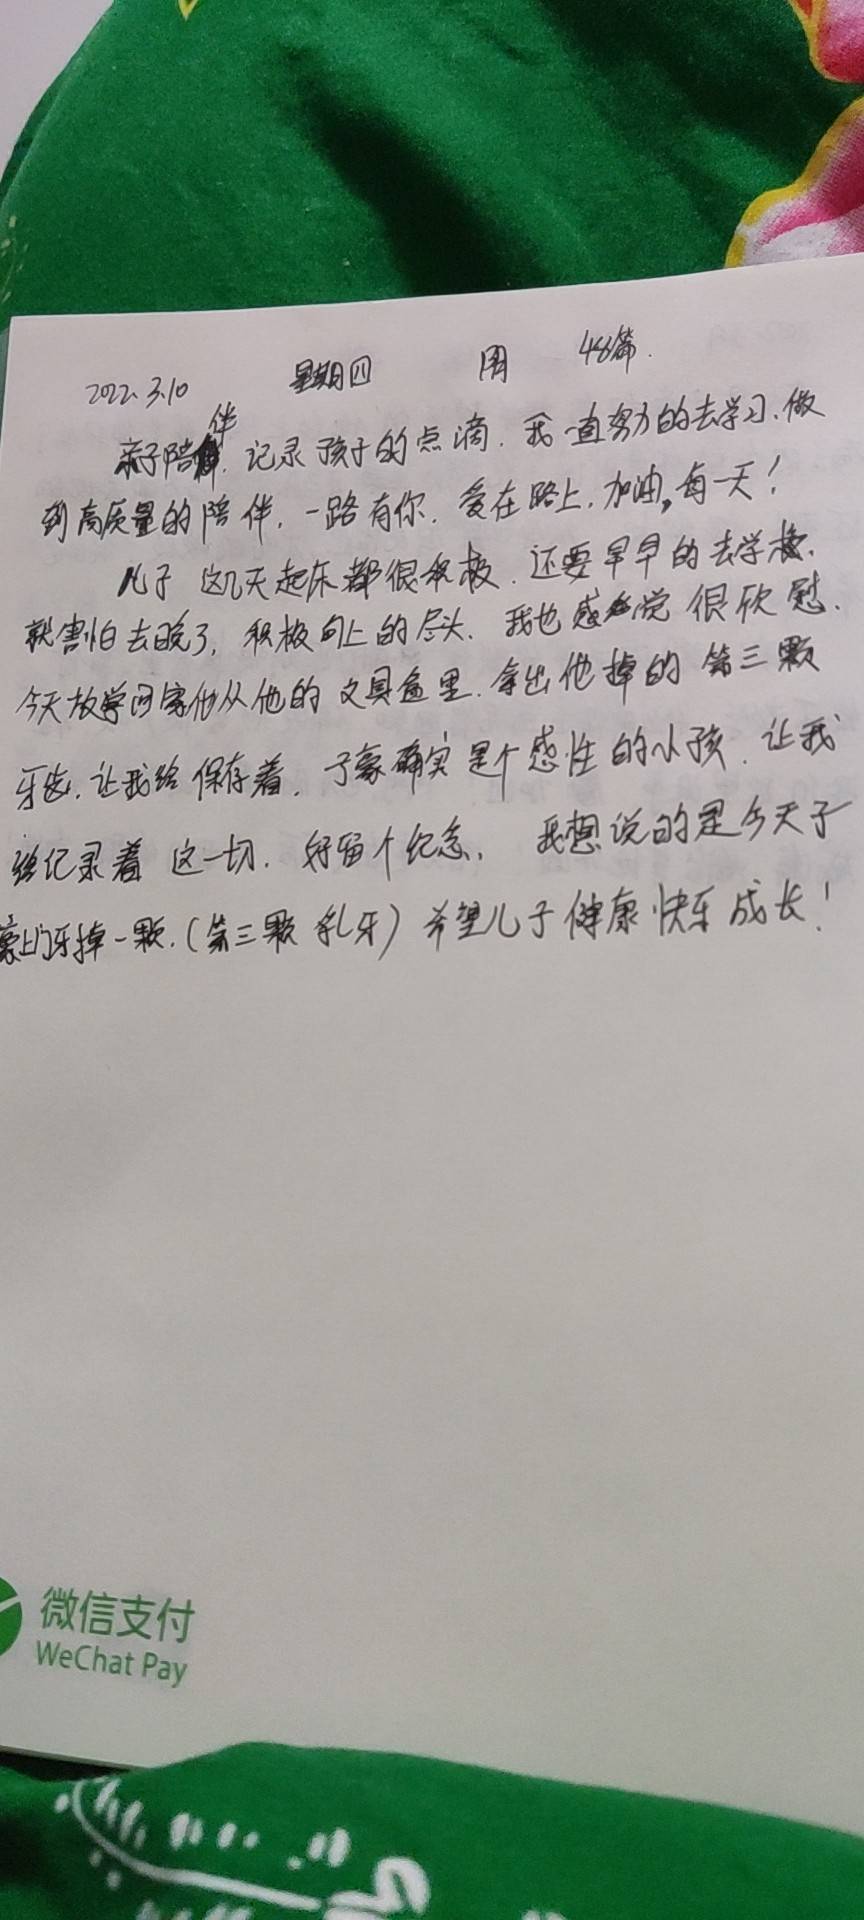 2022.3.10 星期四 阴 48篇.
亲子陪伴.记录孩子的点滴.我一直努力的去学习.做
到高质量的陪伴.一路有你.爱在路上.加油,每一天!
儿子这几天起床都很积极.还要早早的去学校.
就害怕去晚了,积极向上的尽头.我也感觉很欣慰.
今天放学回家他从他的文具盒里.拿出他掉的第三颗
牙齿.让我给保存着.子豪确实是个感性的小孩.让我
给记录着这一切.好留个纪念.我想说的是今天子
豪上门牙掉一颗.(第三颗乳牙)希望儿子健康快乐成长!
微信支付
WeChat Pay